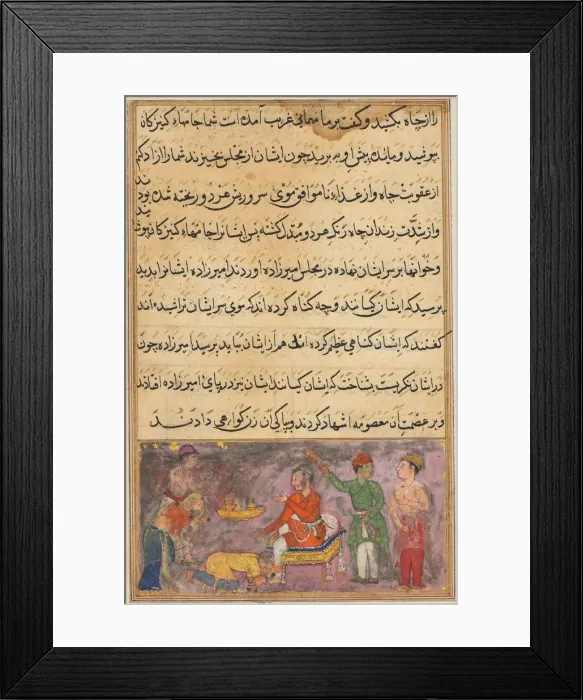 را از چاه بکشید و گفت بر ما مهمانی غریب آمده است شما جامهاء کنیزکان
بپوشید و مائده پیش او به برید چون ایشان از مجلس بخیزند شما را آزاد کنم
از عقوبت چاه و از غذاء ناموافق موی سر و ریش هر دو ریخته شده بود
و از شدت زندان چاه رنگ هر دو مبدل گشته پس ایشان را جامهاء کنیزکان
و خوانها بر سر ایشان نهاده در مجلس امیرزاده آوردند امیرزاده ایشانرا بدید
پرسید که ایشان کیانند و چه گناه کرده اند که موی سر ایشان تراشیده اند
گفتند که ایشان گناهی عظیم کرده اند هم از ایشان بباید پرسید امیرزاده چون
در ایشان نگریست بشناخت که ایشان کیانند ایشان نیز در پای امیرزاده افتادند
و بر عصمت آن معصومه اشهاد کردند و بپاکی آن زن گواهی دادند